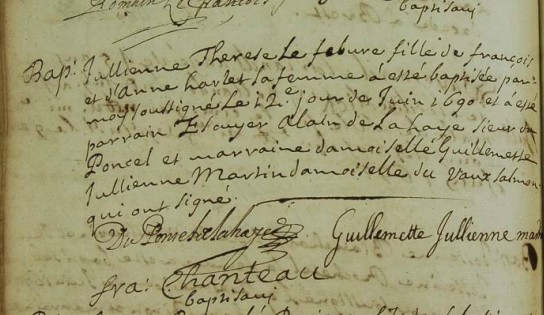 baptisavi
Bap: Jullienne Therese Le febure fille de françois
et d'anne harlet sa femme a esté baptisée par
moy soussigné Le 12.e jour de Juin 1690 et a esté
parrain Escuyer Alain de Lahaye sieur du
Poncel et marraine damoiselle Guillemette
Jullienne Martin damoiselle du Vauxsalmon
qui ont signé.
Guillemette Jullienne
fra: Chanteau
baptisavi